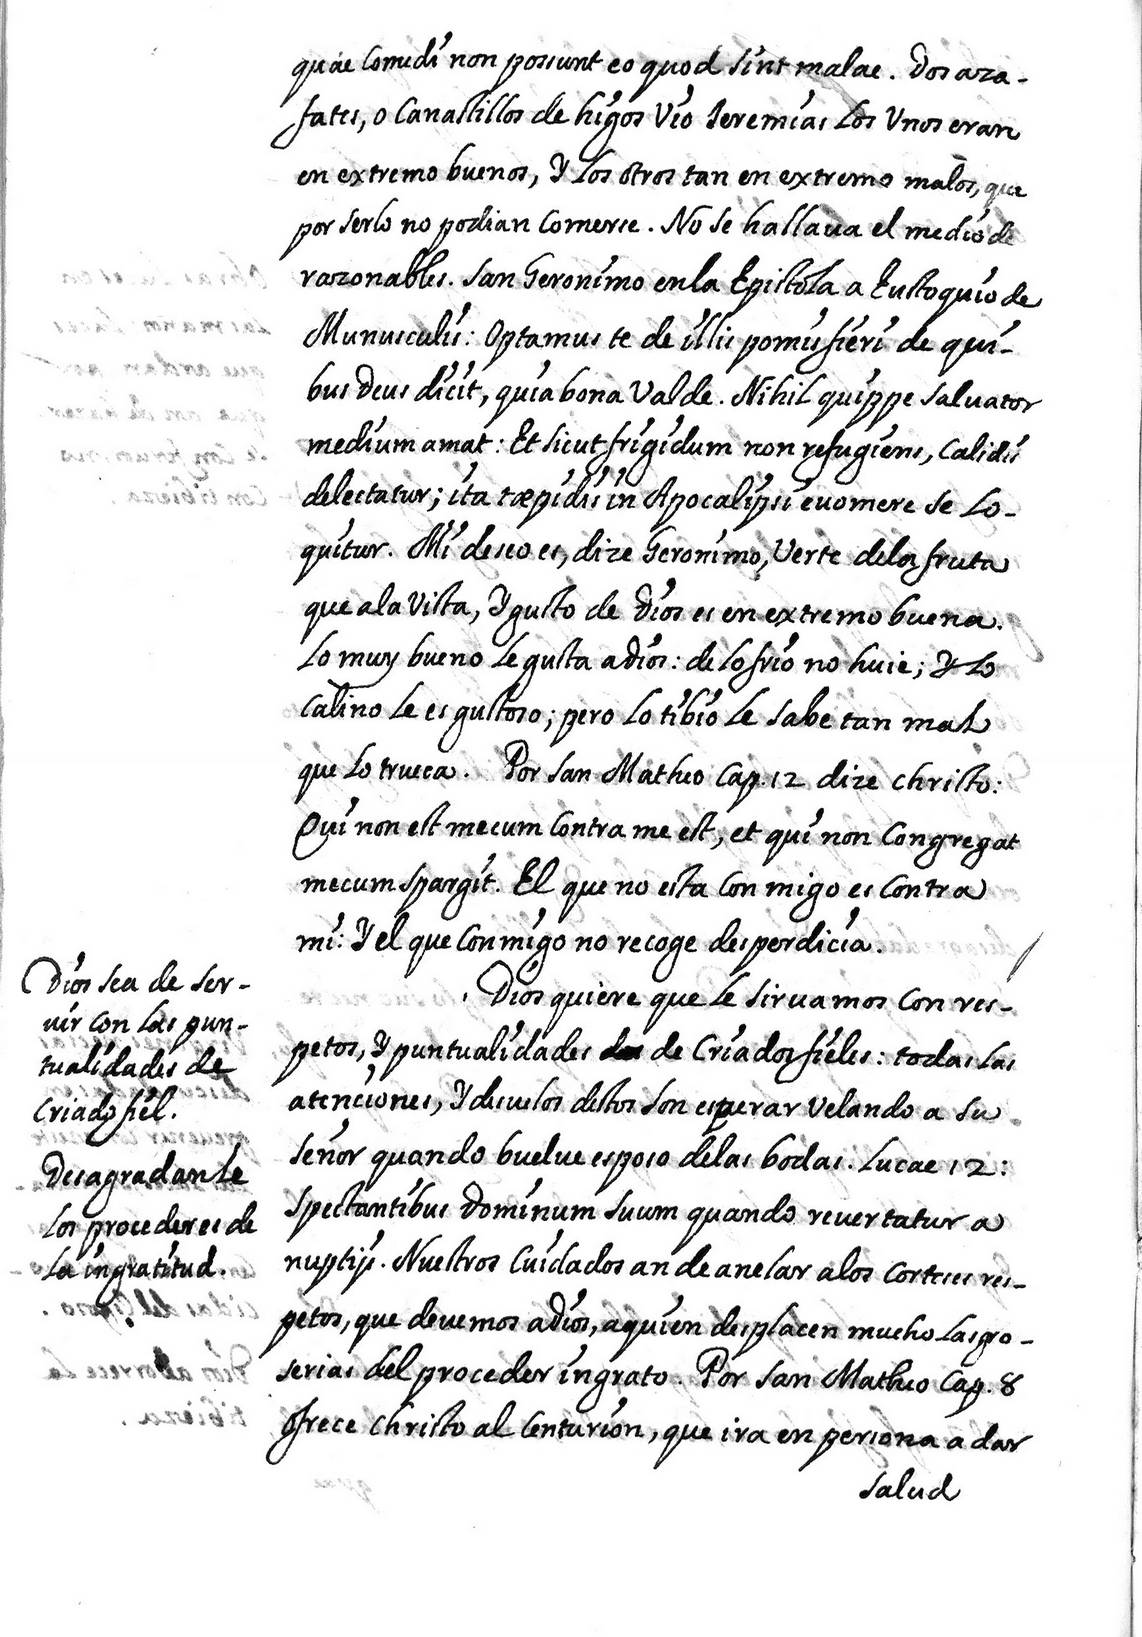 quae Comedi non possunt eo quod sint malae. Dos aza-
fates, o Canastillos de higos Vio Jeremias Los Unos eran
en extremo buenos, Y Los otros tan en extremo malos, que
por serlo no podian Comerse. No se hallaua el medio de
razonables. San Geronimo en la Epistola a Eustoquio de
Munusculis: Optamus te de illis pomis fieri de qui-
bus Deus dicit, quia bona Valde. Nihil quippe Saluator
medium amat: Et sicut frigidum non refugiens, Calidis
delectatur; ita tæpidis in Apocalipsi euomere se Lo-
quitur. Mi deseo es, dize Geronimo, Verte de la fruta
que a la Vista, Y gusto de Dios es en extremo buena.
Lo muy bueno le gusta a dios: de lo frio no huie; Y Lo
Calino le es gustoso; pero Lo tibio Le sabe tan mal
que Lo trueca. Por San Matheo Cap. 12 dize Christo:
Qui non est mecum Contra me est, et qui non Congregat
mecum spargit. El que no esta Con migo es Contra
mi: Y el que Conmigo no recoge desperdicia.
Dios quiere que Le siruamos Con res-
petos, Y puntualidades de Criados fieles: todas Las
atenciones, Y desuelos destos son esperar Velando a su
señor quando buelue esposo de las bodas. Lucae 12:
Spectantibus Dominum suum quando reuertatur a
nuptijs. Nuestros Cuidados an de anelar a los Corteses res-
petos, que devemos a dios, a quien desplacen mucho Las gro-
serias del proceder ingrato. Por San Matheo Cap. 8
Ofrece Christo al Centurion, que ira en persona a dar
salud
Dios sea de ser-
uir Con Las pun-
tualidades de
Criado fiel.
Desagradan le
Los procederes de
La ingratitud.